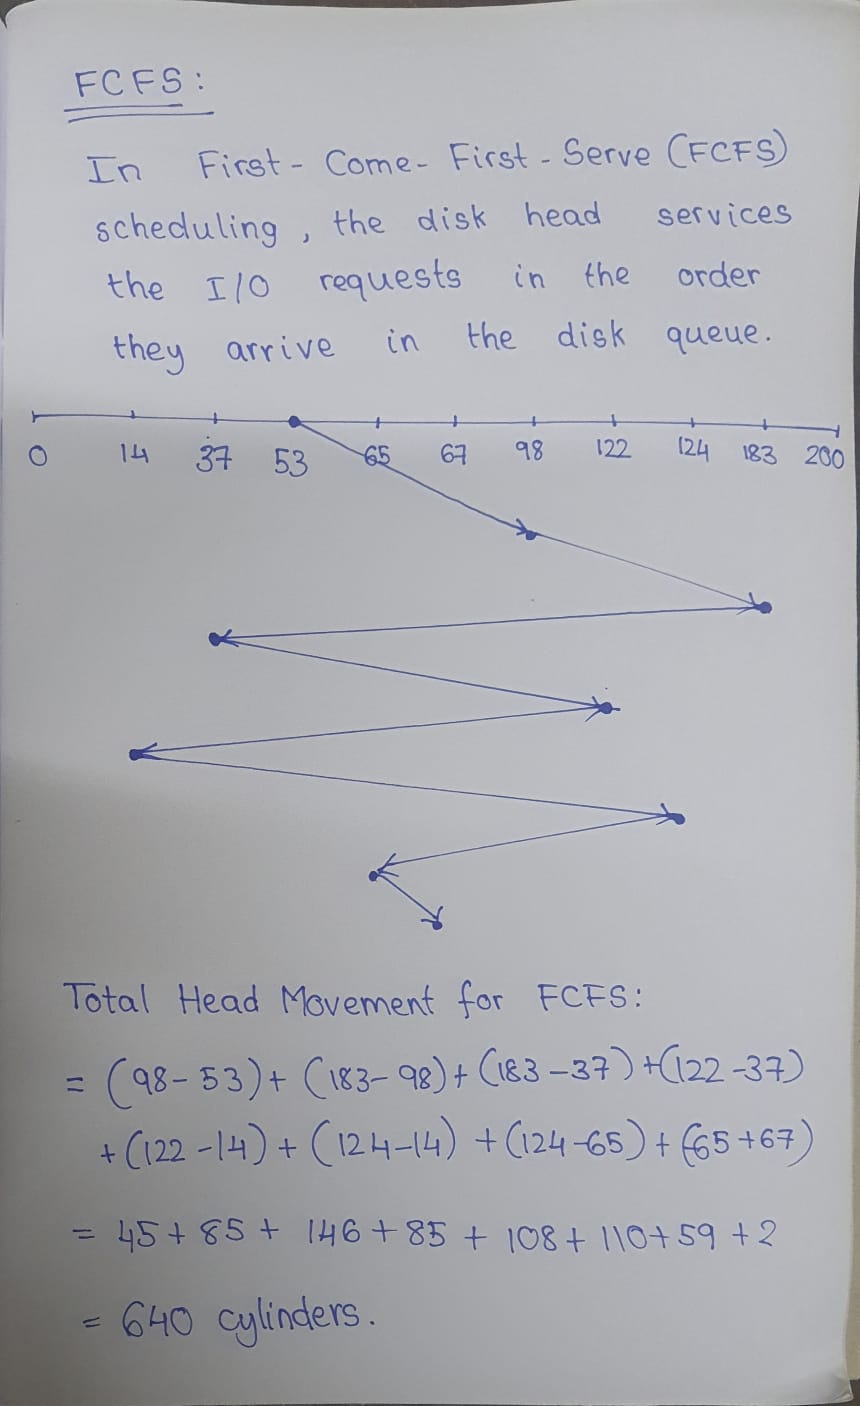 FCFS:
In First-Come-First-Serve (FCFS)
scheduling, the disk head services
the I/O requests in the order
they arrive in the disk queue.
0 14 37 53 65 67 98 122 124 183 200
Total Head Movement for FCFS:
= (98-53)+(183-98)+(183-37)+(122-37)
+(122-14)+(124-14)+(124-65)+(65+67)
= 45+85+146+85+108+110+59+2
= 640 cylinders.